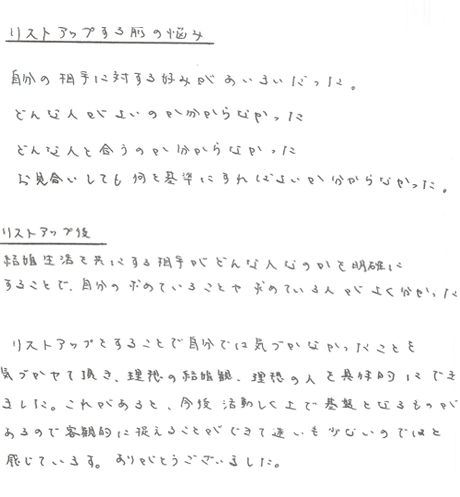 リストアップする前の悩み
自分の相手に対する好みがあいまいだった。
どんな人がよいのか分からなかった
どんな人と合うのか分からなかった
お見合いしても何を基準にすればよいか分からなかった。
リストアップ後
結婚生活を共にする相手がどんな人なのかを明確に
することで、自分の求めていることや求めている人がよく分かった
リストアップをすることで自分では気づかなかったことを
気づかせて頂き、理想の結婚観、理想の人を具体的にでき
ました。これがあると、今後活動していく上で基盤となるものが
あるので客観的に捉えることができて迷いも少ないのではと
感じています。ありがとうございました。